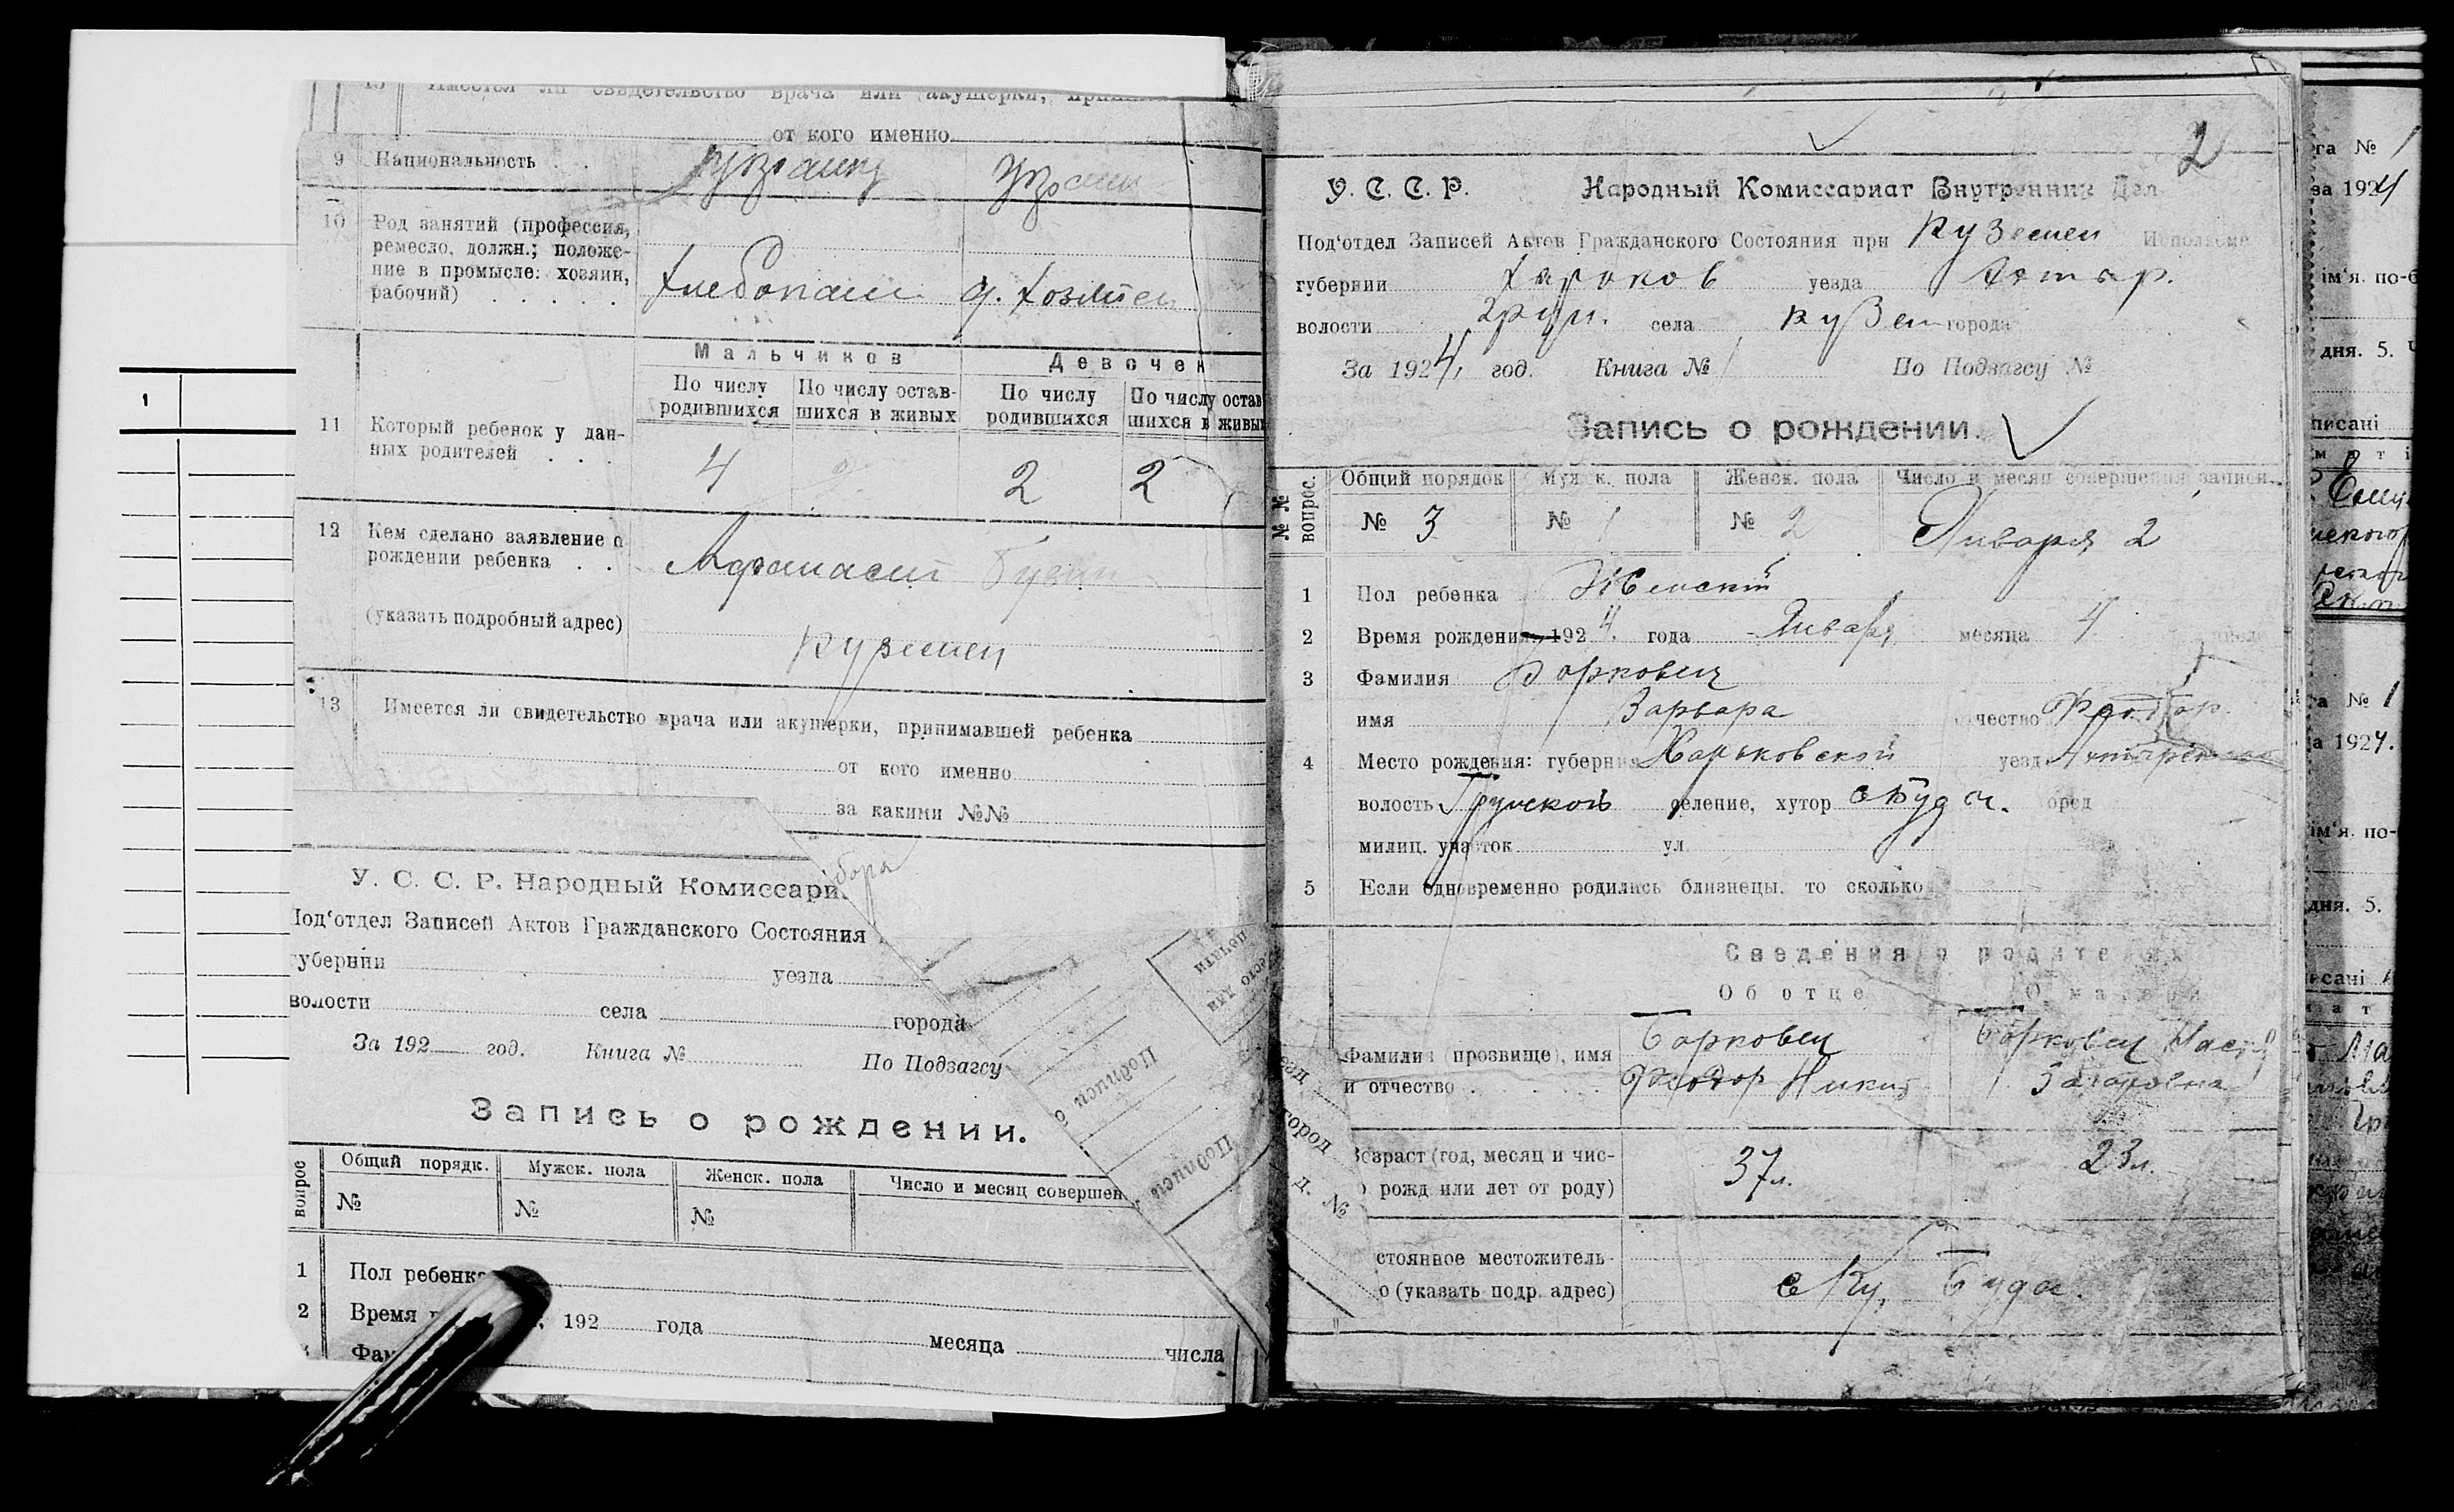 от кого именно
9 Национальность . .
10 Род занятий (профессия,
ремесло, должн.; положе-
ние в промысле: хозяин,
рабочий) . . . . .
Мальчиков Девочек
По числу родившихся По числу остав-шихся в живых По числу родившихся По числу остав шихся в живы
11 Который ребенок у дан-
ных родителей . . .
4 2 2
12 Кем сделано заявление о
рождении ребенка . .
Афанасий
(указать подробный адрес)
13 Имеется ли свидетельство врача или акушерки, принимавшей ребенка
от кого именно
за какими №№
У. С. С. Р. Народный Комиссари
Под‘отдел Записей Актов Гражданского Состояния
губернии уезда
волости села города
За 192 год. Книга № По Подзагсу
Запись о рождении.
вопрос Общий порядк. Мужск. пола Женск. пола Число и месяц совершен
№ № №
1 Пол ребенка
2 Время 192 года месяца числа
Фам
Подписи
Подписи
1
2
У. С. С. Р. Народный Комиссариат Внутренних Дел
Под‘отдел Записей Актов Гражданского Состояния при Исполкоме
губернии Харьков уезда Ахтыр.
волости Грун. села города
За 1924 год. Книга № 1 По Подзагсу №
Запись о рождении.
№№ вопрос. Общий порядок Мужск. пола Женск. пола Число и месяц совершения записи.
№ 3 № 1 № 2 Января 2
1 Пол ребенка Женский
2 Время рождения 1924 года Января месяца 4 числа
3 Фамилия Борковец
имя Варвара отчество Феодор.
4 Место рождения: губерния Харьковской уезд Ахтырского
волость Грунской селение, хутор с Буда. город
милиц. участок ул
5 Если одновременно родились близнецы. то сколько
Сведения о родителях
Об отце О матери
Фамилия (прозвище), имя
и отчество . . . .
Борковец Борковец Наст
Феодор Никит Захаровна
Возраст (год, месяц и чис-
рожд или лет от роду)
37 л. 23 л.
стоянное местожитель-
о (указать подр. адрес)
с Ку. Буда.
езд
город
д. №
га № 1
за 1924
ім‘я. по-б
дня. 5.
писані
а № 1
а 1924.
ім‘я. по-
дня. 5.